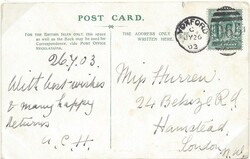 POST CARD.
FOR THE BRITISH ISLES ONLY THIS SPACE
AS WELL AS THE BACK MAY BE USED FOR
CORRESPONDENCE. SEE POST OFFICE
REGULATIONS.
THE ADDRESS ONLY
WRITTEN HERE.
26.7.03.
With best wishes
& many happy
returns
A.C.H.
Miss Hurren.
24 Belsize Rd
Hampstead,
London,
N.W.